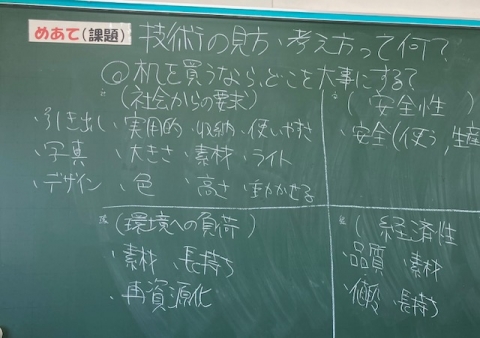 めあて(課題) 技術の見方・考え方って何?
◎机を買うなら、どこを大事にする?
(社会からの要求)
・引き出し ・実用的 ・収納 ・使いやすさ
・写真 ・大きさ ・素材 ・ライト
・デザイン ・色 ・高さ ・動かせる
( 安全性 )
・安全(使う, 生産
(環境への負荷)
・素材 ・長持ち
・再資源化
( 経済性
・品質 ・素材
・値段 ・長持ち